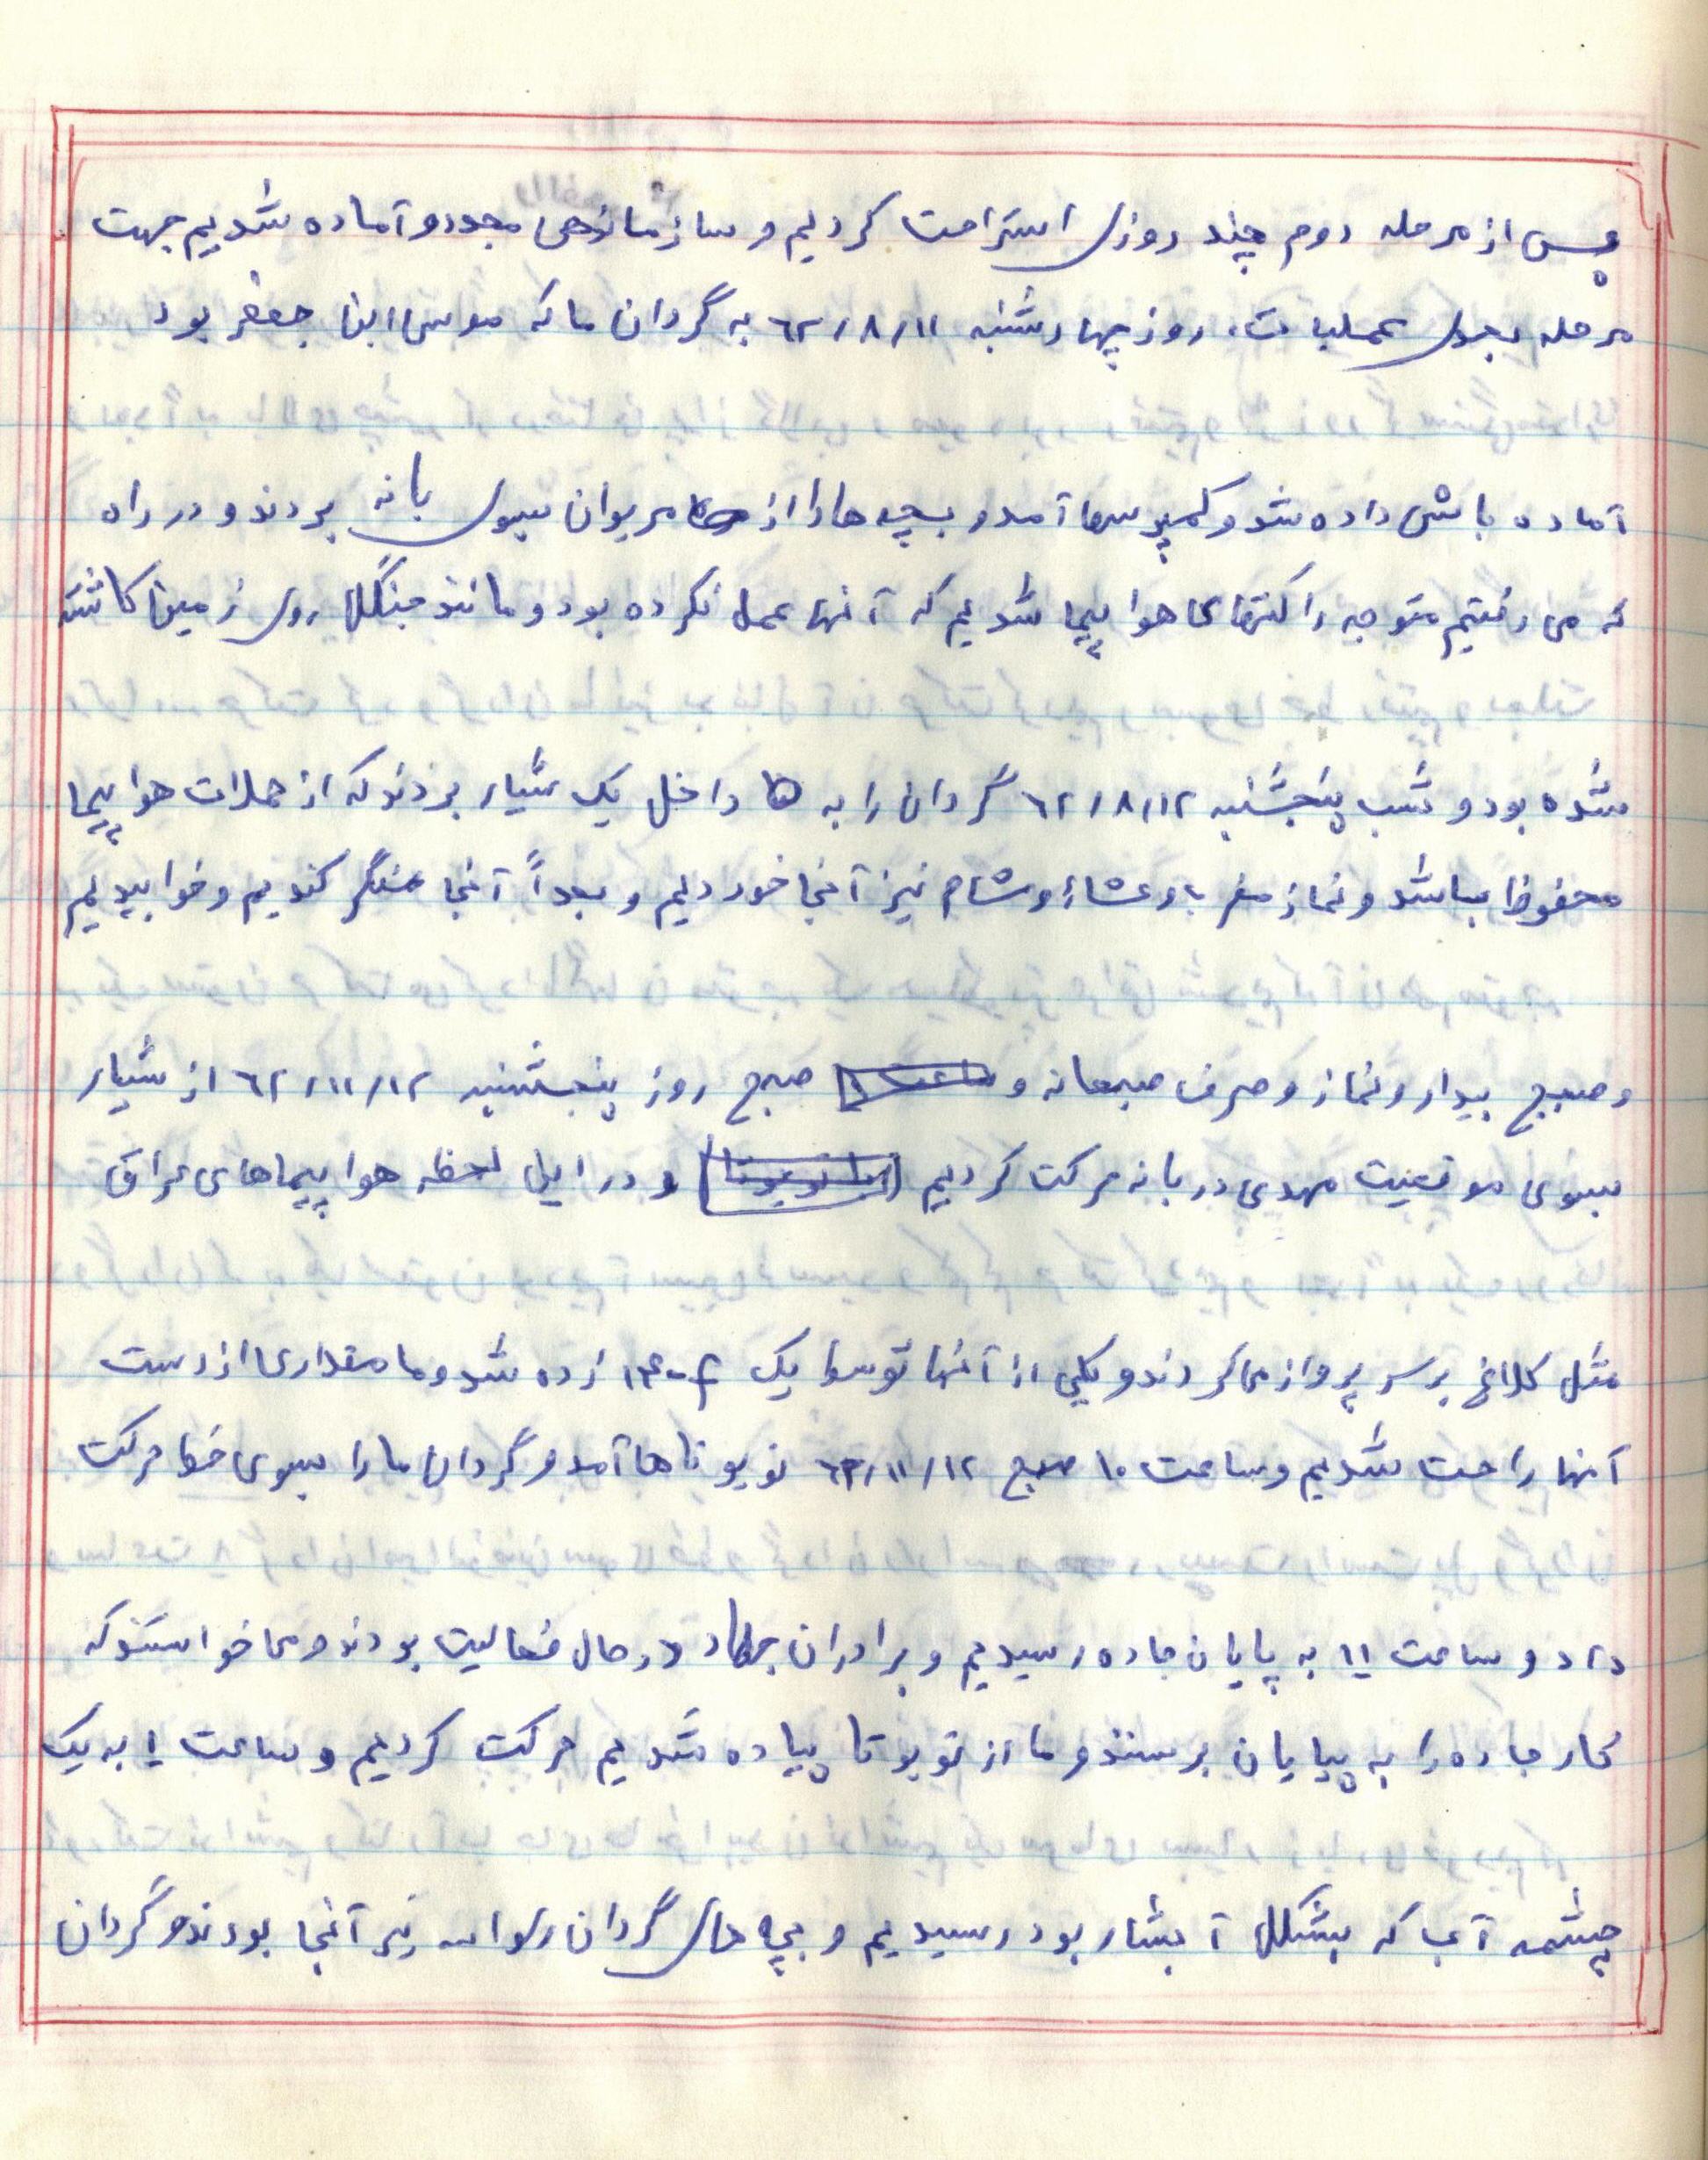 پس از مرحله دوم چند روزی استراحت کردیم و سازماندهی مجدد و آماده شدیم جهت
مرحله بعدی عملیات، روز چهارشنبه ۶۲/۸/۱۱ به گردان ما که موسی ابن جعفر بود
آماده باش داده شد و کمپرسها آمد و بچه ها را از مریوان بسوی بانه بردند و در راه
که می رفتیم متوجه راکتهای هواپیما شدیم که آنها عمل نکرده بود و مانند جنگل روی زمین کاشته
شده بود و شب پنجشنبه ۶۲/۸/۱۲ گردان را به داخل یک شیار بردند که از حملات هواپیما
محفوظ باشد و نماز مغرب و عشاء و شام نیز آنجا خوردیم و بعداً آنجا سنگر کندیم و خوابیدیم
و صبح بیدار و نماز و صرف صبحانه و صبح روز پنجشنبه ۶۲/۱۱/۱۲ از شیار
بسوی موقعیت مهدی در بانه حرکت کردیم و در این لحظه هواپیماهای عراق
مثل کلاغ بر سر پرواز می کردند و یکی از آنها توسط یک اف-۱۴ زده شد و ما مقداری از دست
آنها راحت شدیم و ساعت ۱۰ صبح ۶۲/۱۱/۱۲ تویوتاها آمد و گردان ما را بسوی خط حرکت
داد و ساعت ۱۱ به پایان جاده رسیدیم و برادران جهاد در حال فعالیت بودند و می خواستند که
کار جاده را به پایان برسنند و ما از تویوتا پیاده شدیم حرکت کردیم و ساعت ۱ به یک
چشمه آب که بشکل آبشار بود رسیدیم و بچه های گردان نیز آنجا بودند و گردان